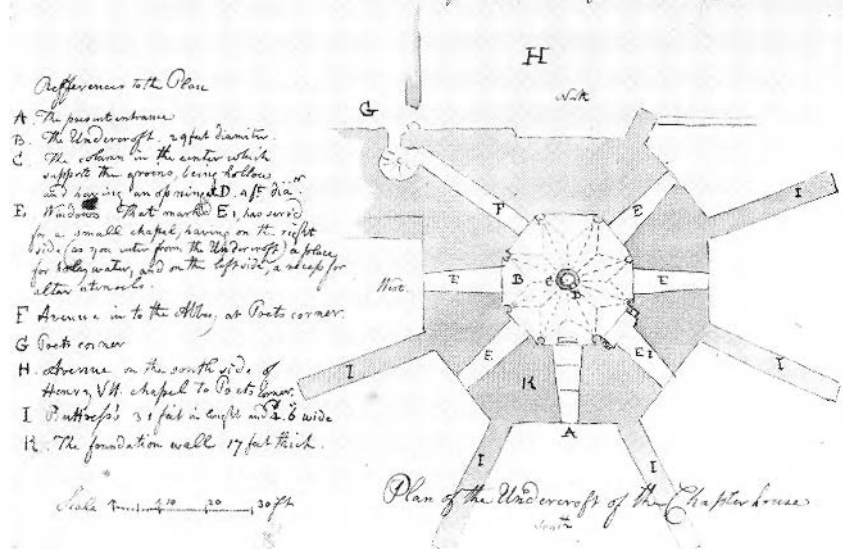 H
North
G
Refferences to the Plan
A The present entrance
B. The Undercroft. 29 feet diamiter.
C. The column in the center which
support the groins, being hollow
and having an opning at D. 4 ft diar.
E, Windows. That marked E1, has servd
for a small chapel, having on the right
side (as you enter from the Undercroft) a place
for holy water, and on the left side, a recess for
altar utensels.
F Avenue in to the Abbey at Poets corner.
G Poets corner
H. Avenue on the south side of
Henry VII. chapel to Poets corner.
I Buttress's 31 feet in lenght and 4.6 wide
K. The foundation wall 17 feet thick.
Scale 10 20 30 ft
F
E
I
West.
E
B
C
D
E
I
E
E1
I
K
A
I
I
Plan of the Undercroft of the Chapter house
South